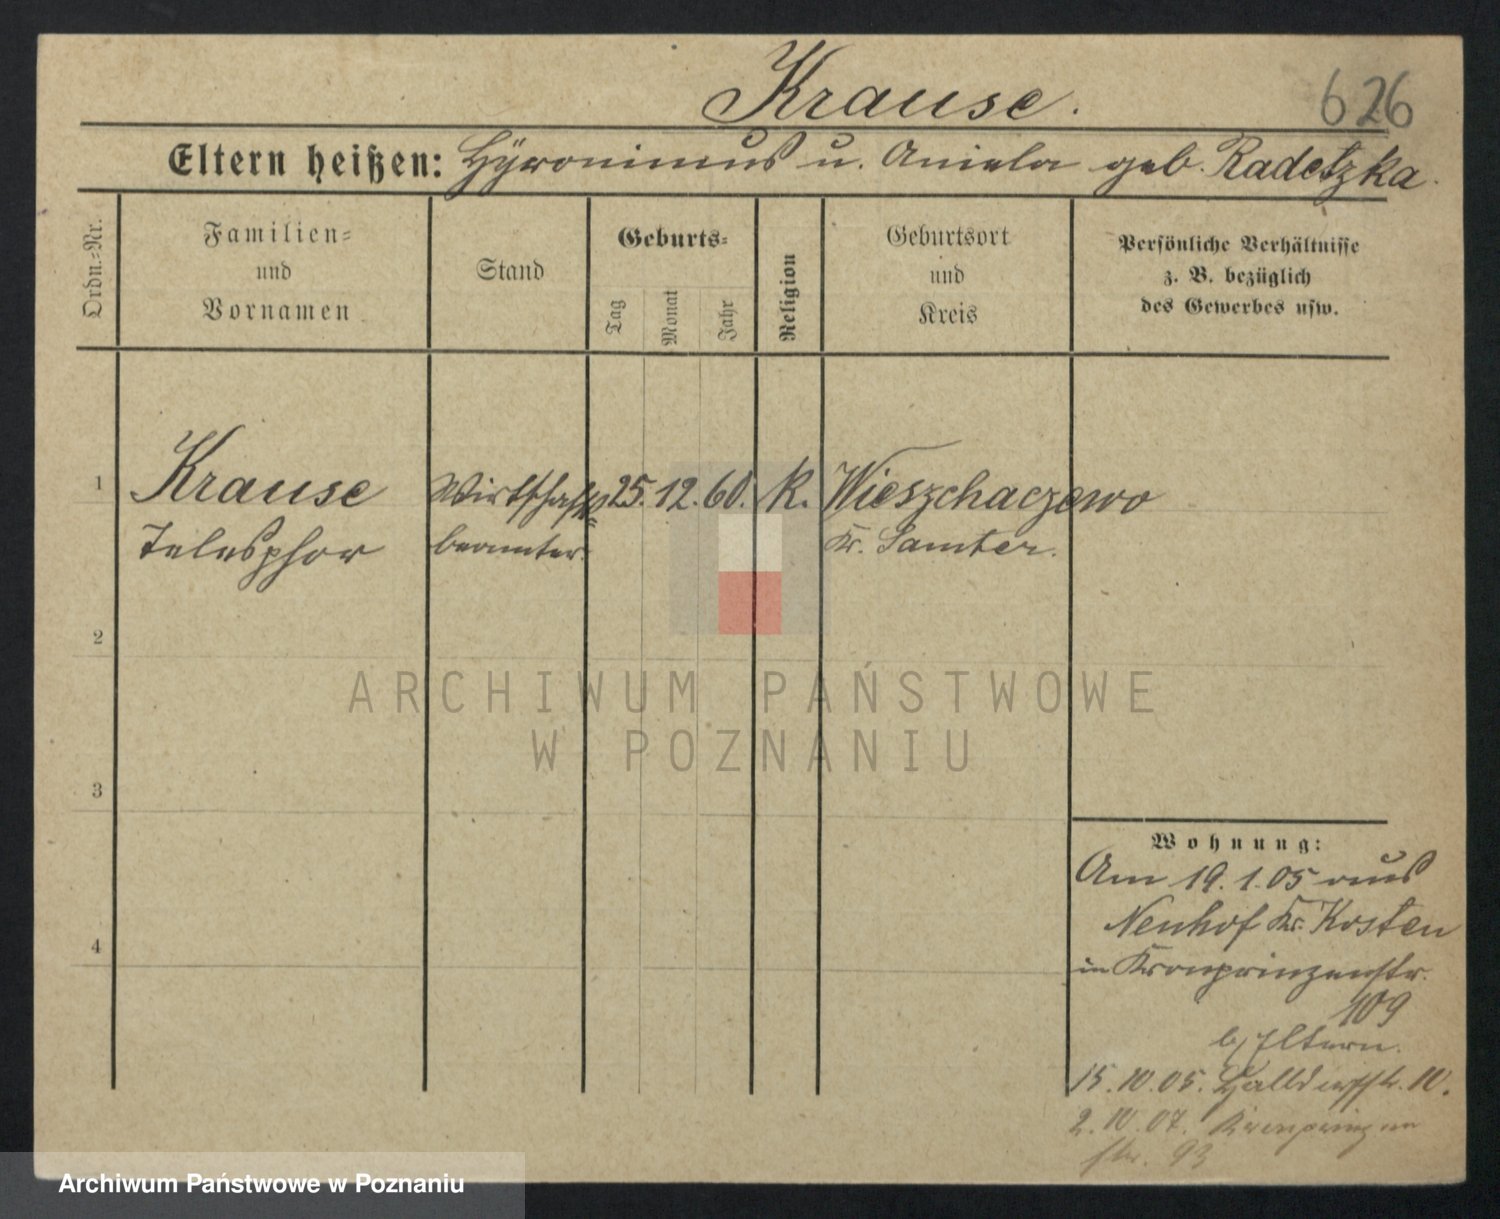 Krause.
626
Eltern heißen: Hÿronimus u. Aniela geb. Radetzka.
Ordn.-Nr.
Familien-
und
Vornamen
Stand
Geburts-
Tag
Monat
Jahr
Religion
Geburtsort
und
Kreis
Persönliche Verhältnisse
z. B. bezüglich
des Gewerbes usw.
1
Krause
Telesphor
Wirtschafts-
beamter.
25. 12. 60.
k.
Wieszchaczewo
Kr. Samter.
2
3
4
ARCHIWUM PAŃSTWOWE
W POZNANIU
Wohnung:
Am 19.1.05 aus
Neuhof Kr. Kosten
in Kronprinzenstr.
109
b/ Eltern.
15.10.05. 10.
2.10.07. Kronprinzen
str. 93
Archiwum Państwowe w Poznaniu